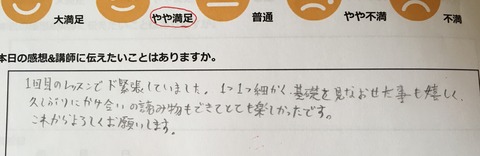 大満足 やや満足 普通 やや不満 不満
本日の感想&講師に伝えたいことはありますか。
1回目のレッスンでド緊張していました。1つ1つ細かく、基礎を見なおせた事も嬉しく、
久しぶりにかけ合いの読み物もできてとても楽しかったです。
これからよろしくお願いします。